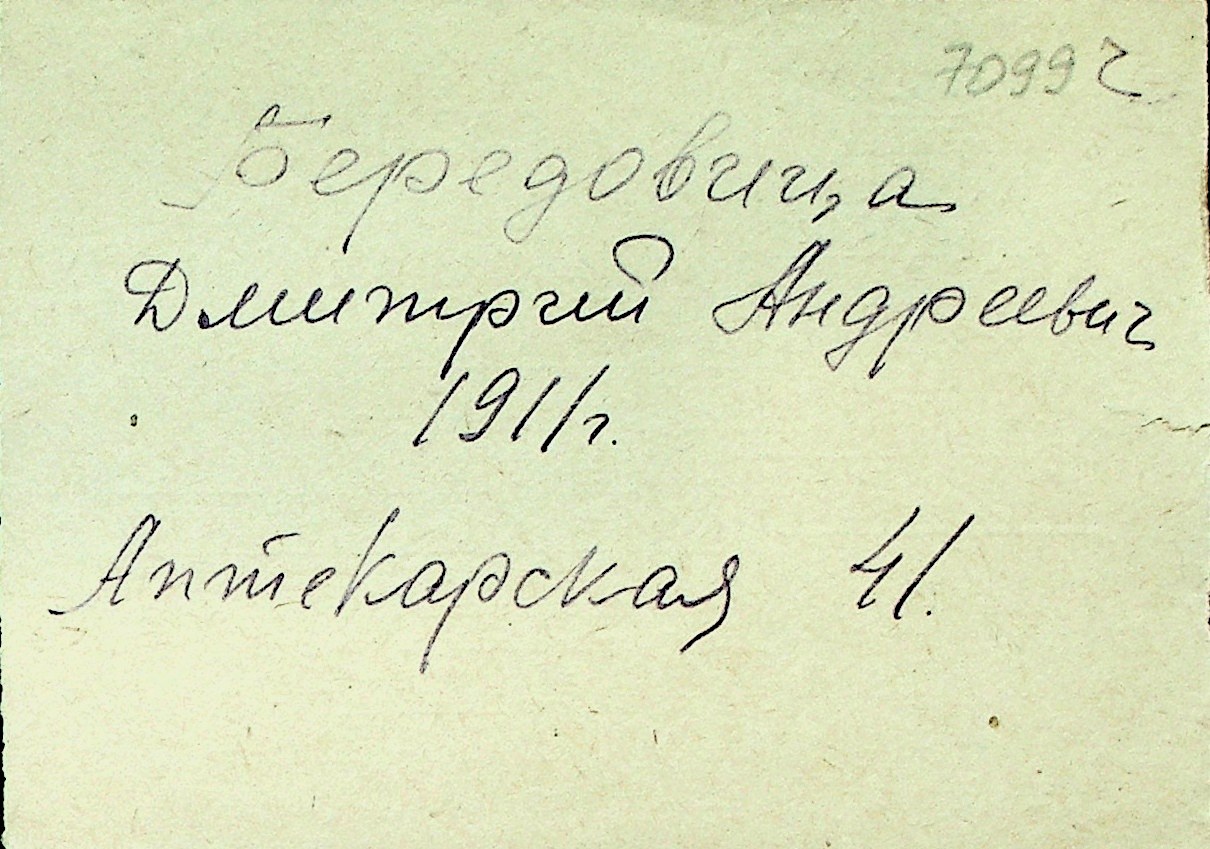 7099 г
Бередовица
Дмитрий Андреевич
1911г.
Аптекарская 41.